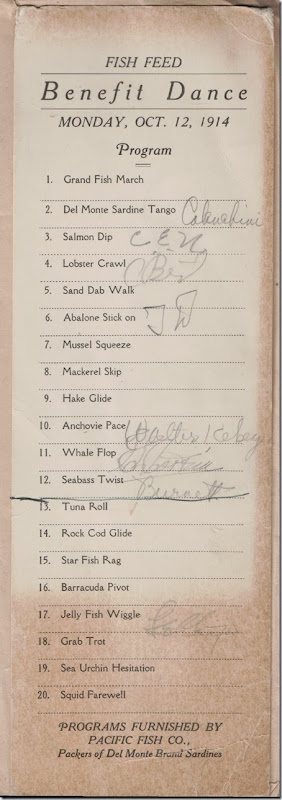 FISH FEED
Benefit Dance
MONDAY, OCT. 12, 1914
Program
1. Grand Fish March
2. Del Monte Sardine Tango
3. Salmon Dip C E N
4. Lobster Crawl
5. Sand Dab Walk
6. Abalone Stick on J W
7. Mussel Squeeze
8. Mackerel Skip
9. Hake Glide
10. Anchovie Pace Walter
11. Whale Flop
12. Seabass Twist Burnett
13. Tuna Roll
14. Rock Cod Glide
15. Star Fish Rag
16. Barracuda Pivot
17. Jelly Fish Wiggle
18. Grab Trot
19. Sea Urchin Hesitation
20. Squid Farewell
PROGRAMS FURNISHED BY
PACIFIC FISH CO.,
Packers of Del Monte Brand Sardines